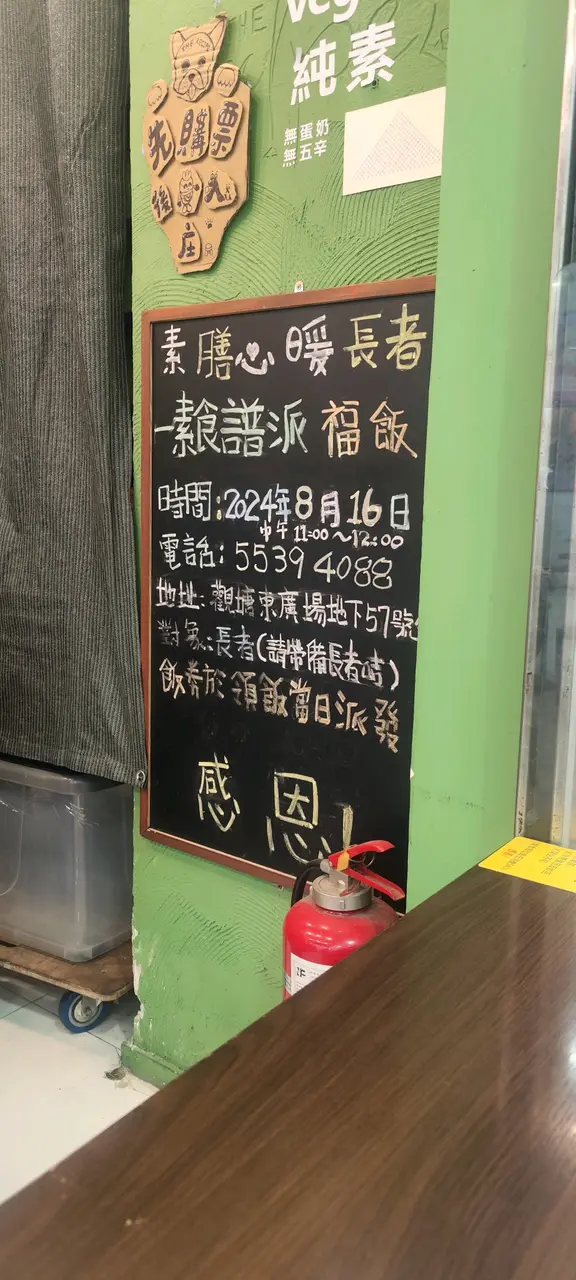 THE
veg
純素
無蛋奶
無五辛
先購票
後入
庄
素膳心暖長者
一素食譜派福飯
時間:2024年8月16日
中午 11:00~12:00
電話:5539 4088
地址:觀塘東廣場地下57號
對象:長者(請帶備長者咭)
飯券於領飯當日派發
感恩